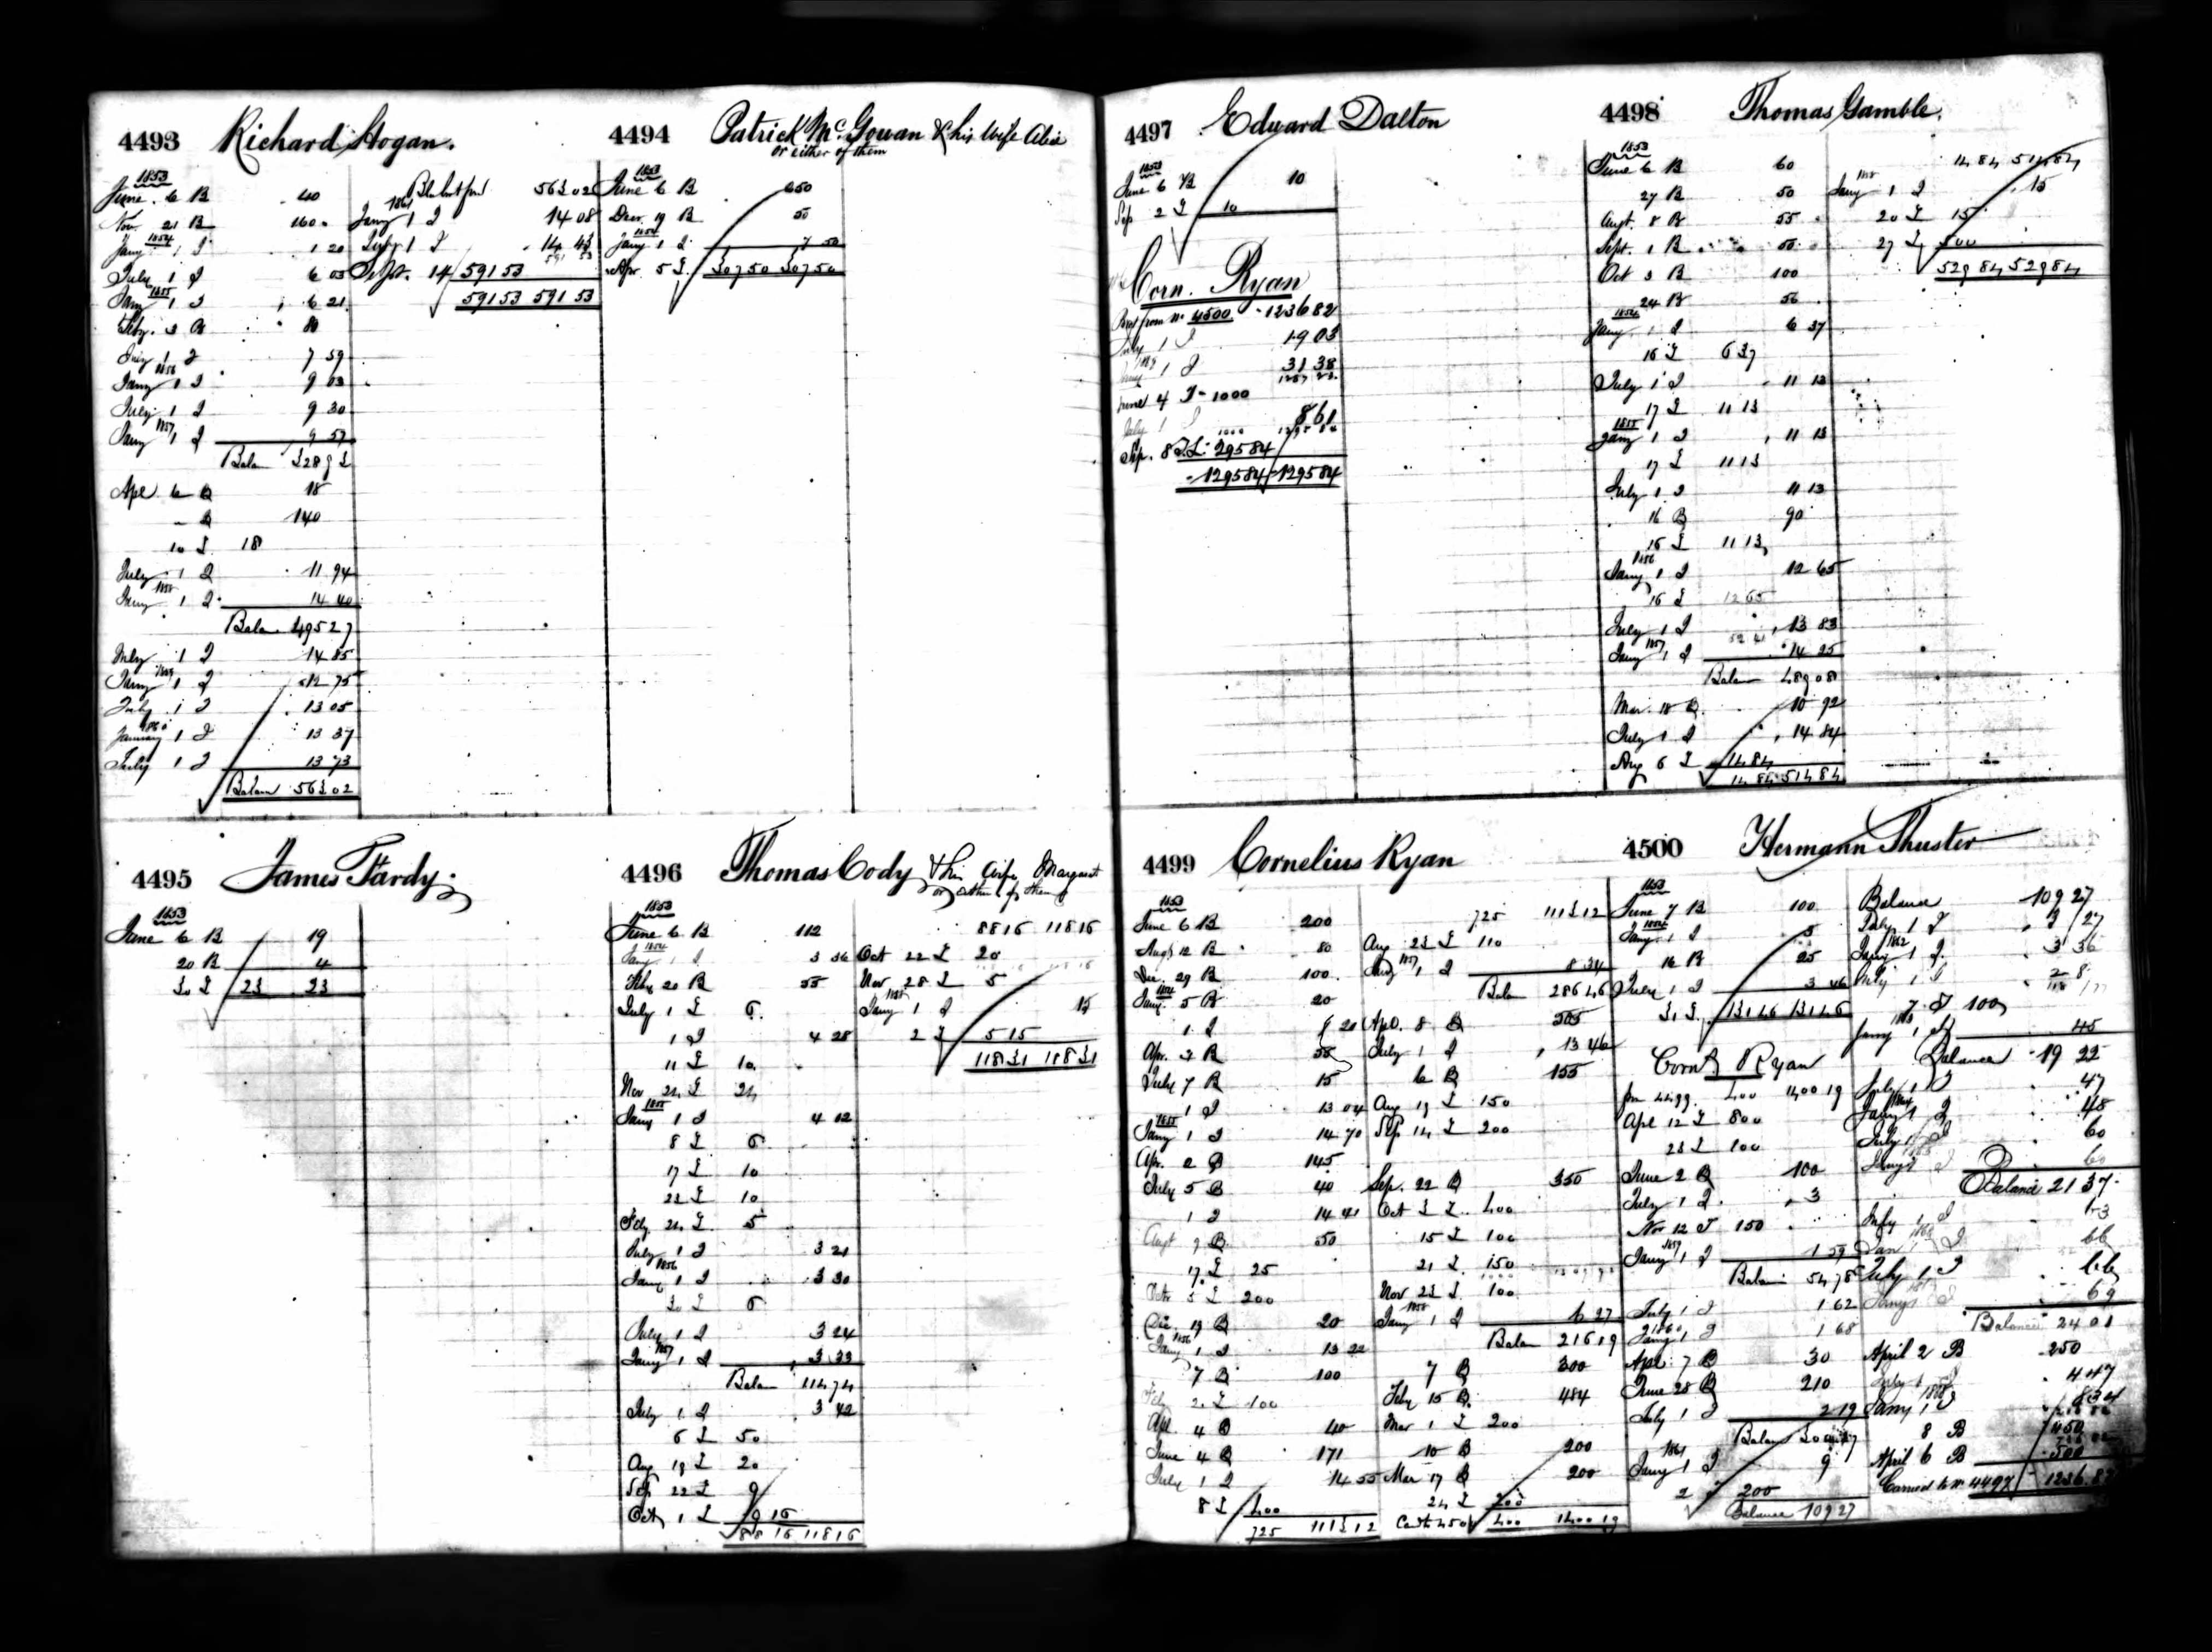 4493 Richard Hogan.
1853
June 6 B 40
Nov. 21 B 160
1854
Jany 1 I 1 20
July 1 I 6 03
1855
Jany 1 I 6 21
Feby. 3 B 80
July 1 I 7 59
1856
Jany 1 I 9 03
July 1 I 9 30
1857
Jany 1 I 9 57
Balan 328 93
Apl 6 B 18
- B 140
10 £ 18
July 1 I 11 94
1858
Jany 1 I 14 40
Balan 495 27
July 1 I 14 85
1859
Jany 1 I 12 75
July 1 I 13 05
1860
January 1 I 13 37
July 1 I 13 73
Balan 563 02
563 02
1861
Jany 1 I 14 08
July 1 I 14 43
591 53
Sept. 14 591 53
591 53 591 53
4494 Patrick Mc.Gowan & his Wife Alice
or either of them
1853
June 6 B 250
Decr. 19 B 50
1854
Jany 1 I 7 50
Apr. 5 £ 307 50 307 50
4495 James Tardy
1853
June 6 B 19
20 B 4
30 £ 23 23
4496 Thomas Cody & his Wife Margaret
or either of them
1853
June 6 B 112
1854
Jany 1 I 3 36
Feby 20 B 55
July 1 £ 6
1 I 4 28
11 £ 10
Nov 24 £ 24
1855
Jany 1 I 4 02
8 £ 6
17 £ 10
22 £ 10
Feby 24 £ 5
July 1 I 3 21
1856
Jany 1 I 3 30
30 £ 6
July 1 I 3 24
1857
Jany 1 I 3 33
Balan 114 74
July 1 I 3 42
6 £ 50
Aug 19 £ 20
Sep 22 £ 9
Oct 1 £ 9 16
88 16 118 16
88 16 118 16
Oct 22 £ 20
Nov 28 £ 5
1858
Jany 1 I 15
2 £ 5 15
118 31 118 31
4497 Edward Dalton
1853
June 6 B 10
Sep 2 £ 10
Corn. Ryan
from No 4500 1236 82
July 1 I 19 03
Jany 1 I 31 38
1287 23
June 4 I 1000
July 1 I 8 61
1000 1295 84
Sep. 8 295 84
1295 84 1295 84
4498 Thomas Gamble.
1853
June 6 B 60
27 B 50
Augt. 8 B 55
Sept. 1 B 50
Oct 3 B 100
24 B 56
1854
Jany 1 I 6 37
16 £ 6 37
July 1 I 11 13
17 £ 11 13
1855
Jany 1 I 11 13
17 £ 11 13
July 1 I 11 13
16 B 90
16 £ 11 13
1856
Jany 1 I 12 65
16 £ 12 65
July 1 I 13 83
52 41
1857
Jany 1 I 14 25
Balan 489 08
Mar. 18 B 10 92
July 1 I 14 84
Aug 6 £ 14 84
14 84 514 84
14 84 514 84
1858
Jany 1 I 15
20 £ 15
27 £ 500
529 84 529 84
4499 Cornelius Ryan
1853
June 6 B 200
Augt 12 B 80
Dec. 29 B 100
1854
Jany 5 B 20
1 I 6 20
Apr. 3 B 58
July 7 B 15
1 I 13 04
1855
Jany 1 I 14 70
Apr. 2 B 145
July 5 B 40
1 I 14 41
Augt 9 B 50
17 £ 25
Octr 5 £ 200
Dec. 19 B 20
1856
Jany 1 I 13 22
7 B 100
Feby 2 £ 100
Apl. 4 B 40
June 4 B 171
July 1 I 14 55
8 £ 400
725 1113 12
725 1113 12
Aug 23 £ 110
1857
Jany 1 I 8 34
Balan 286 46
Apl. 8 B 305
July 1 I 13 46
6 B 155
Aug 19 £ 150
Sep 14 £ 200
Sep. 22 B 350
Oct 3 £ 400
15 £ 100
21 £ 150
Nov 23 £ 100
1858
Jany 1 I 6 27
Balan 216 19
7 B 300
Feby 15 B 484
Mar 1 £ 200
10 B 200
Mar 17 B 200
24 £ 200
400 1400 19
4500 Hermann Thuster
1853
June 7 B 100
1854
Jany 1 I 3
16 B 25
July 1 I 3 46
31 £ 131 46 131 46
Corns Ryan
from 4499 400 1400 19
Apl 12 £ 800
23 £ 100
June 2 B 100
July 1 I 3
Nov 12 I 150
1859
Jany 1 I 1 59
Balan 54 78
July 1 I 1 62
1860
Jany 1 I 1 68
Apr. 7 B 30
June 28 B 210
July 1 I 2 19
Balan 300 27
1861
Jany 1 I 9
2 I 200
Balance 109 27
Balance 109 27
July 1 I 3 27
1862
Jany 1 I 3 36
July 1 I
7 I 100
1863
Jany 1 I 45
Balance 19 22
July 1 I 47
1864
Jany 1 I 48
July 1 I 60
Jany 1 I 60
Balance 21 37
July 1 I 63
1866
Jan 1 I 66
July 1 I 66
Jany 1 I 69
Balance 24 01
April 2 B 250
July 1 I 4 47
1868
Jany 1 I 8 34
8 B 450
April 6 B 500
Carried to No 4497 1236 82